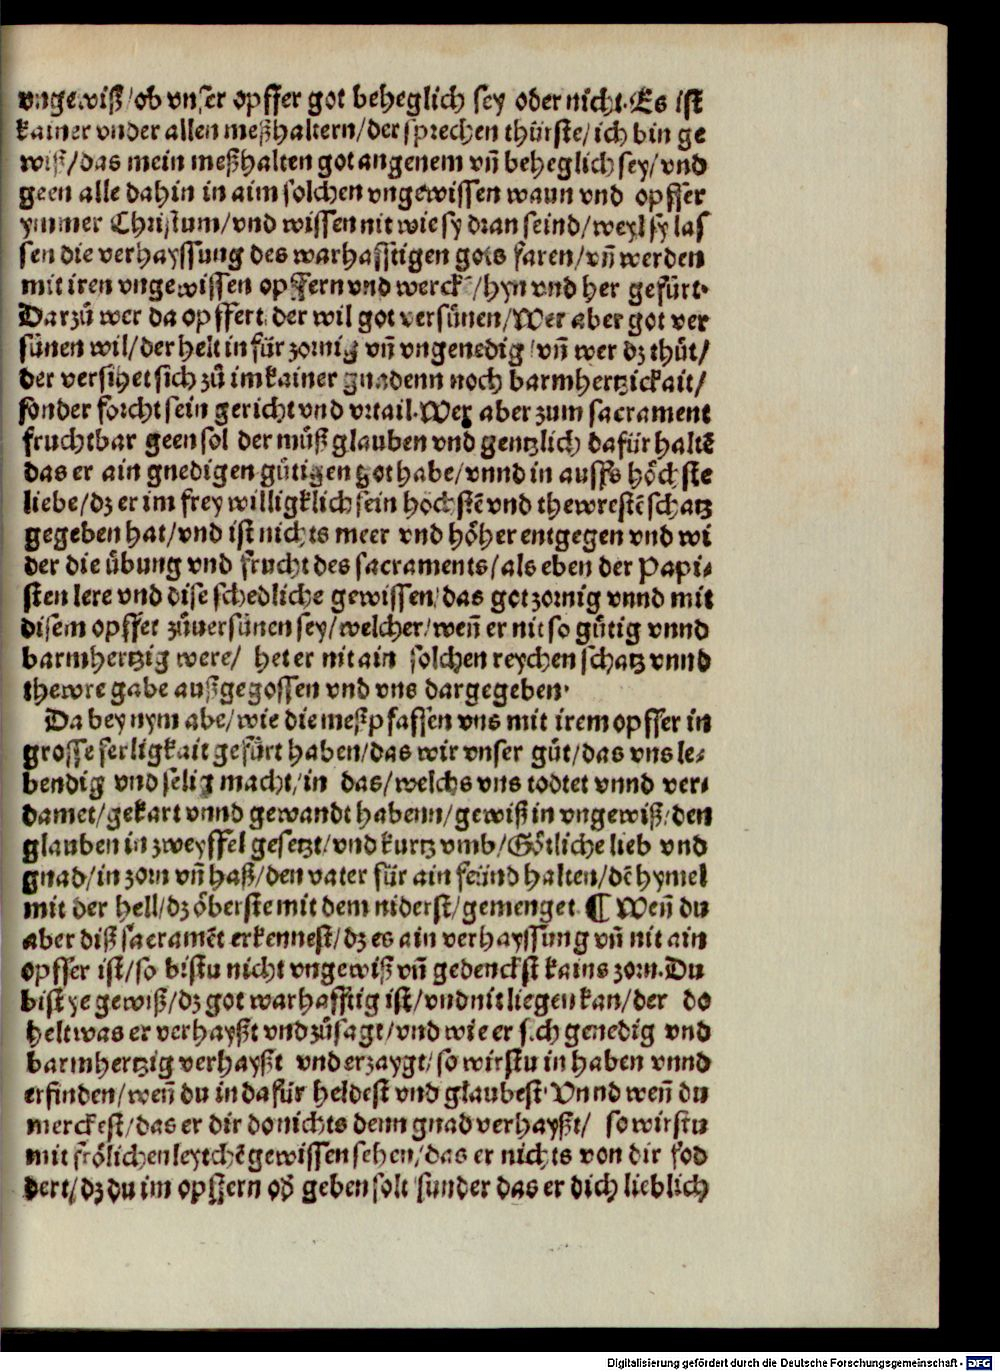 vngewiß/ob vnser opffer got beheglich sey oder nicht. Es ist
kainer vnder allen meßhaltern/der sprechen thürste/ich bin ge
wiß/das mein meßhalten got angenem vn̄ beheglich sey/vnd
geen alle dahin in aim solchen vngewissen waun vnd opffer
ymmer Christum/vnd wissen nit wie sy dran seind/weyl sy las
sen die verhayssung des warhafftigen gots faren/vn̄ werden
mit iren vngewissen opffern vnd werck/hyn vnd her gefürt.
Darzů wer da opffert der wil got versünen/Wer aber got ver
sünen wil/der helt in für zornig vn̄ vngenedig/vn̄ wer dz thůt/
der versihet sich zů im kainer gnadenn noch barmhertzickait/
sonder forcht sein gericht vnd vrtail. Wer aber zum sacrament
fruchtbar geen sol der můß glauben vnd gentzlich dafür haltē
das er ain gnedigen gütigen got habe/vnnd in auffs höchste
liebe/dz er im frey willigklich sein höchstē vnd thewrestē schatz
gegeben hat/vnd ist nichts meer vnd höher entgegen vnd wi
der die übung vnd frucht des sacraments/als eben der Papi⸗
sten lere vnd dise schedliche gewissen/das got zornig vnnd mit
disem opffer zůuersünen sey/welcher/wen̄ er nit so gütig vnnd
barmhertzig were/ het er nit ain solchen reychen schatz vnnd
thewre gabe außgegossen vnd vns dargegeben.
Da bey nym abe/wie die meßpfaffen vns mit irem opffer in
grosse ferligkait gefürt haben/das wir vnser gůt/das vns le⸗
bendig vnd selig macht/in das/welchs vns todtet vnnd ver⸗
damet/gekart vnnd gewandt habenn/gewiß in vngewiß/den
glauben in zweyffel gesetzt/vnd kurtz vmb/Götliche lieb vnd
gnad/in zorn vn̄ haß/den vater für ain feünd halten/dē hymel
mit der hell/dz öberste mit dem niderst/gemenget. ¶ Wen̄ du
aber diß sacramēt erkennest/dz es ain verhayssung vn̄ nit ain
opffer ist/so bistu nicht vngewiß vn̄ gedenckst kains zorn. Du
bist ye gewiß/dz got warhafftig ist/vnd nit liegen kan/der do
helt was er verhayßt vnd zůsagt/vnd wie er sich genedig vnd
barmhertzig verhayßt vnd erzaygt/so wirstu in haben vnnd
erfinden/wen̄ du in dafür heldest vnd glaubest. Vnnd wen̄ du
merckest/das er dir do nichts denn gnad verhayßt/ so wirstu
mit frölichen leytchē gewissen sehen/das er nichts von dir fod
dert/dz du im opffern oď geben solt sunder das er dich lieblich
Digitalisierung gefördert durch die Deutsche Forschungsgemeinschaft - DFG